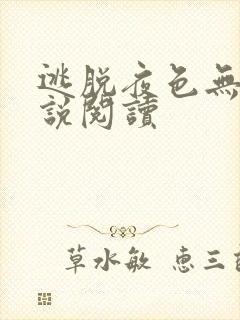 逃脱夜色無
說閱讀
草水敏 惠三